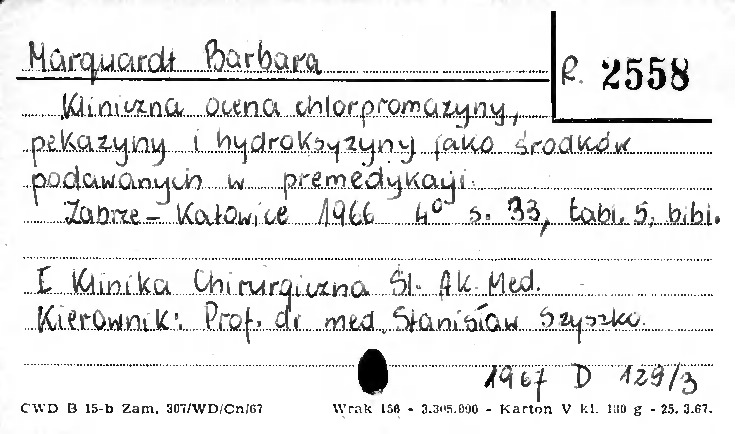 Marquardt Barbara
R. 2558
Kliniczna ocena chlorpromazyny,
pekazyny i hydroksyzyny jako środków
podawanych w premedykacji.
Zabrze - Katowice 1966 4° s. 33, tabl. 5, bibl.
I Klinika Chirurgiczna Śl. Ak. Med.
Kierownik: Prof. dr med. Stanisław Szyszko.
1967 D 129/3
CWD B 15-b Zam. 307/WD/Cn/67 Wrak 156 - 3.305.000 - Karton V kl. 180 g - 25.3.67.